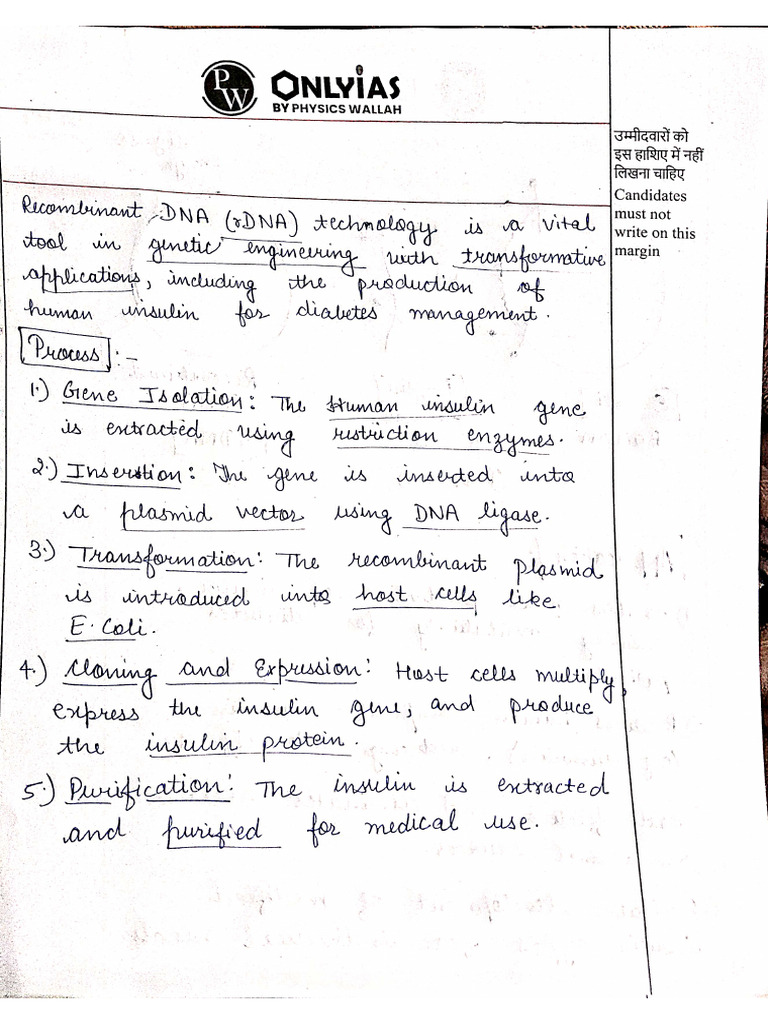 PW ONLYIAS
BY PHYSICS WALLAH
उम्मीदवारों को
इस हाशिए में नहीं
लिखना चाहिए
Candidates
must not
write on this
margin
Recombinant DNA (rDNA) technology is a vital
tool in genetic engineering with transformative
applications, including the production of
human insulin for diabetes management.
Process :-
1.) Gene Isolation: The Human insulin gene
is extracted using restriction enzymes.
2.) Inserstion: The gene is inserted into
a plasmid vector using DNA ligase.
3.) Transformation: The recombinant plasmid
is introduced into host cells like
E. Coli.
4.) Cloning and Expression: Host cells multiply,
express the insulin gene, and produce
the insulin protein.
5.) Purification: The insulin is extracted
and purified for medical use.